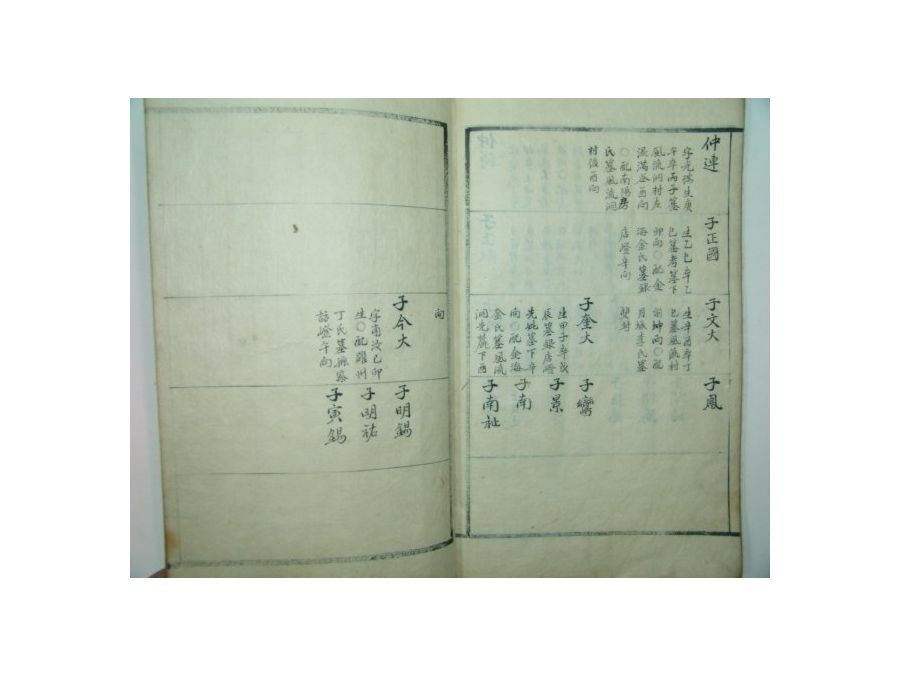 仲連
字允瑞生庚
午卒丙子墓
風流洞村左
浸滿谷酉向
○配南陽房
氏墓風流洞
村後酉向
子正國
生乙巳卒乙
巳墓考墓下
卯向○配金
海金氏墓錄
店嶝辛向
子文大
生辛酉卒丁
巳墓風流村
前坤向○配
月城李氏墓
雙封
子鳳
子奎大
生甲子卒戊
辰墓錄店嶝
先妣墓下辛
向○配金海
金氏墓風流
洞先麓下酉
子鸞
子景
子南
子南祉
向
子今大
字南汝己卯
生○配羅州
丁氏墓
嶝午向
子明錫
子明祐
子寅錫